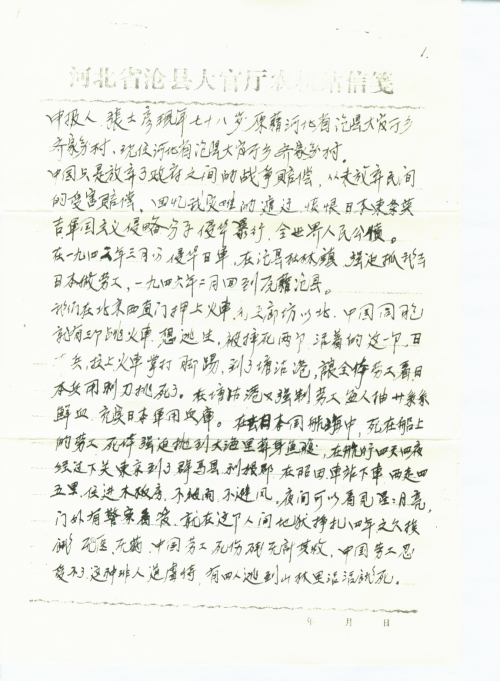 1.
河北省沧县大官厅农机站信笺
申报人 張士彦 现年七十八岁 原籍河北省沧县大官厅乡
齐家务村，现住河北省沧县大官厅乡齐家务村。
中国只是放弃了政府之间的战争赔偿，从未放弃民间
的受害赔偿，回忆我受难的遭迂，恨恨日本東条英
吉軍国主义侵略分子侵华暴行，全世界人民公愤。
在一九四 年三月份侵华日軍，在沧县 林鎮，强迫抓我去
日本做劳工，一九四六年二月回到原籍沧县。
我们在北京西直门押上火車， 廊坊以北，中国同胞
就有三个跳火車，想逃生，被摔死两个，活着的这一个，日
兵，拉上火車掌打脚踢，到了塘沽港，讓全体劳工看，日
本兵用刺刀挑死了。在塘沽港又强制劳工 人抽廿 
鲜血，充实日本軍用血庫。在去日本国船 中，死在船上
的劳工，死体强迫抛到大海里葬身鱼腹，在航行四天四夜
经过下关東京到了群馬县利根郡 在昭田車站下車，西走四
五里，住进木板房，不 雨，不避风，夜间可以看见星、月亮，
门外有警察看 ，就在这个人间地狱挣扎四年之久 
 无医，无药，中国劳工死伤 无 其收，中国劳工忍
受不了这种非人道虐待，有四人逃到山林里活活 死。
年 月 日